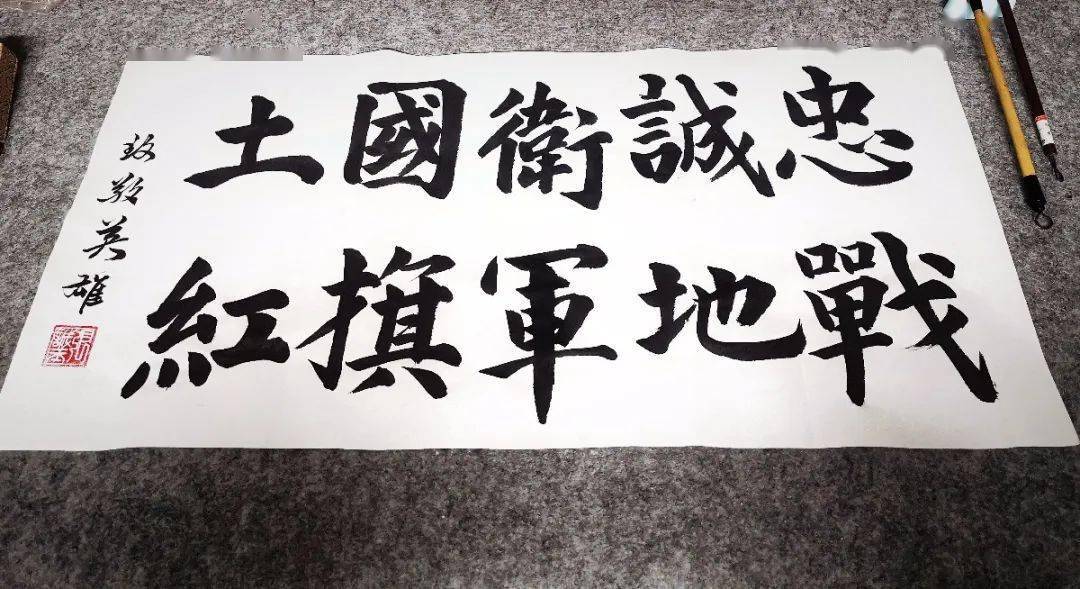 忠誠衛國土
戰地軍旗紅
致敬英雄